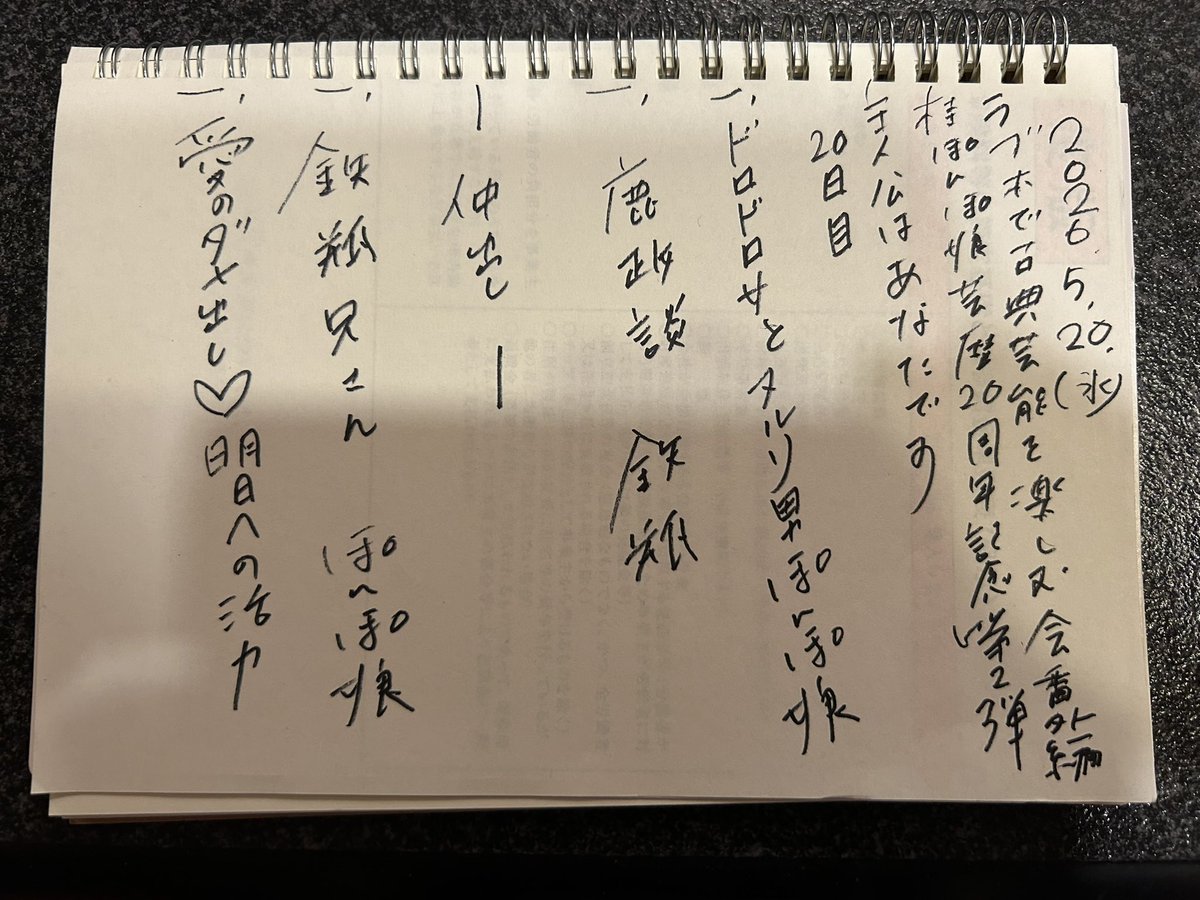 2026.5.20.(水)
ラブホで古典芸能を楽しむ会番外編
桂ぽんぽ娘芸歴20周年記念第2弾
主人公はあなたです
20日目
一、ドロドロ女とタルリ男 ぽんぽ娘
一、鹿政談 鉄瓶
ー仲出しー
一、鉄瓶兄さん ぽんぽ娘
一、愛のダメ出し♡明日への活力